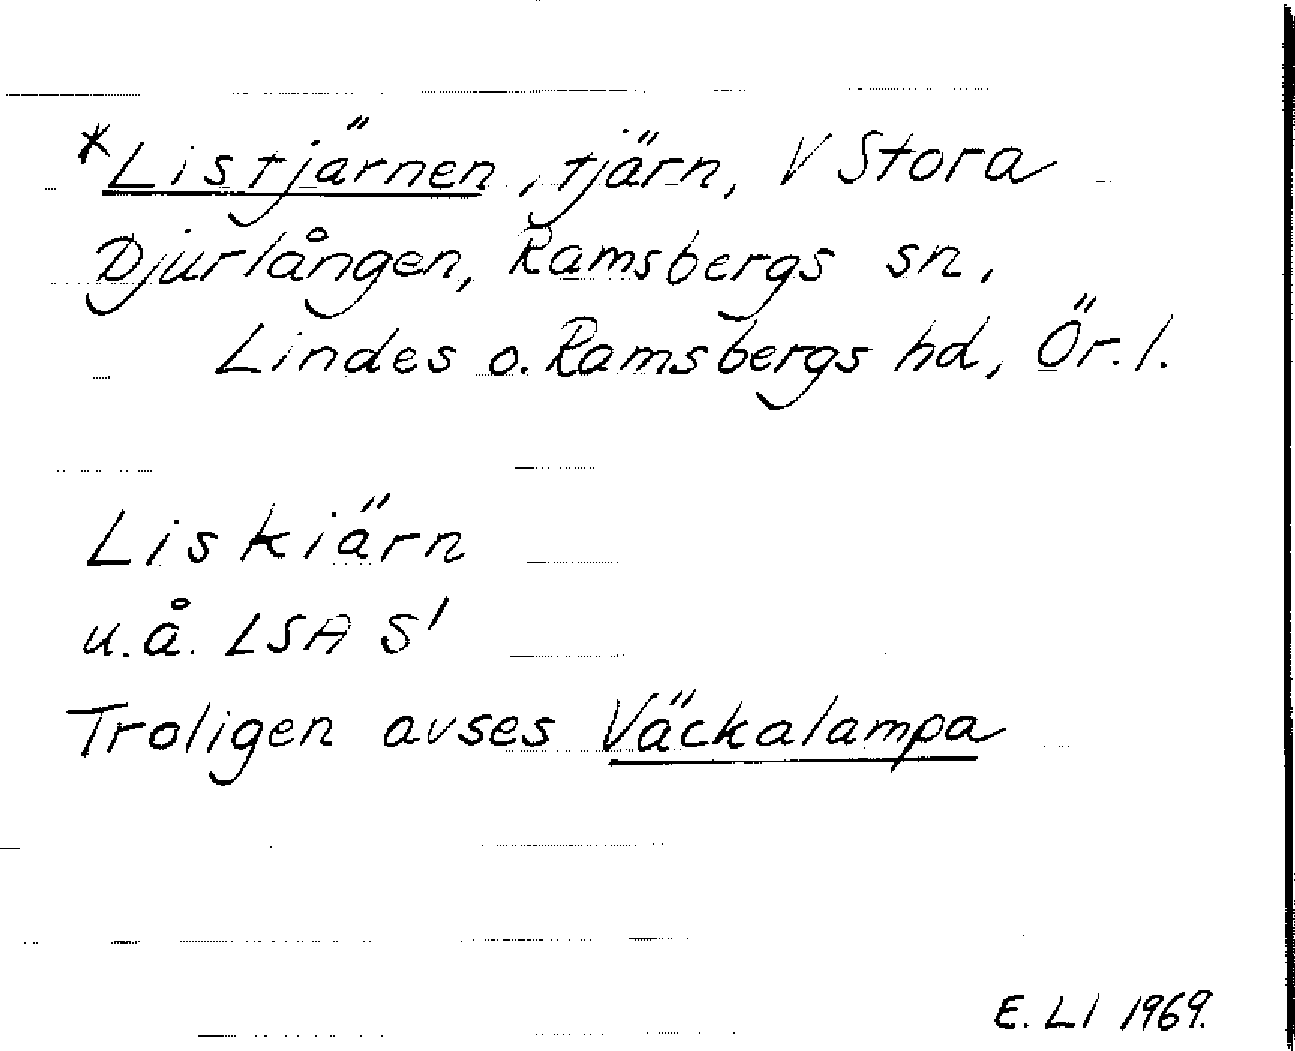 *Listjärnen, tjärn, V Stora
Djurlången, Ramsbergs sn,
Lindes o. Ramsbergs hd, Ör. l.
Liskiärn
u.å. LSA S'
Troligen avses Väckalampa
E. Ll 1969.